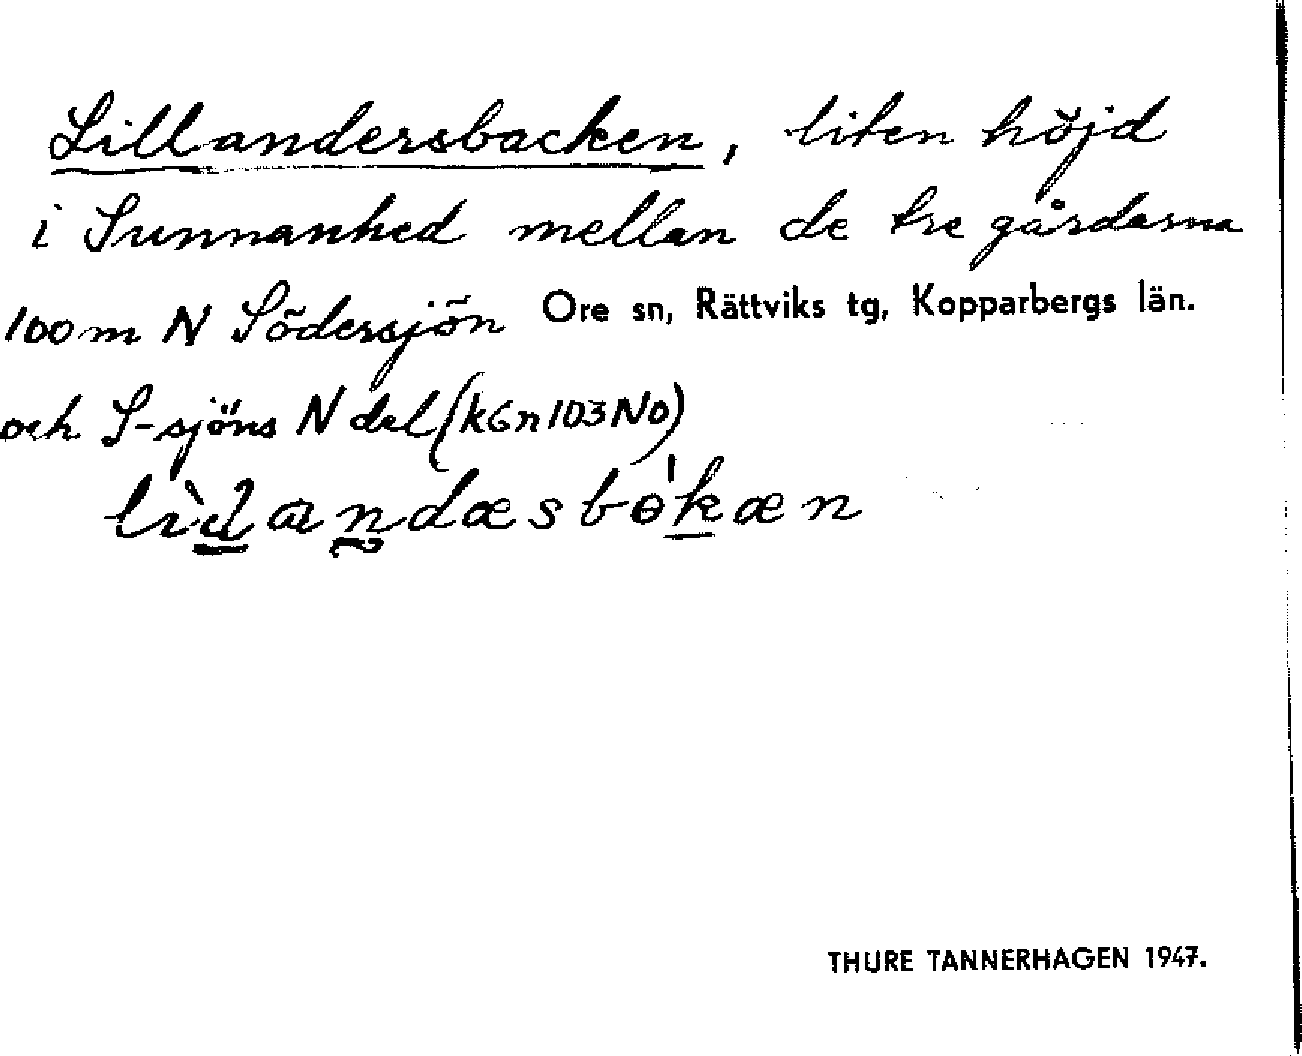 Lillandersbacken, liten höjd
i Sunnanhed mellan de tre gårdarna
100 m N Södersjön Ore sn, Rättviks tg, Kopparbergs län.
och S-sjöns N del (k6n103NO)
THURE TANNERHAGEN 1947.